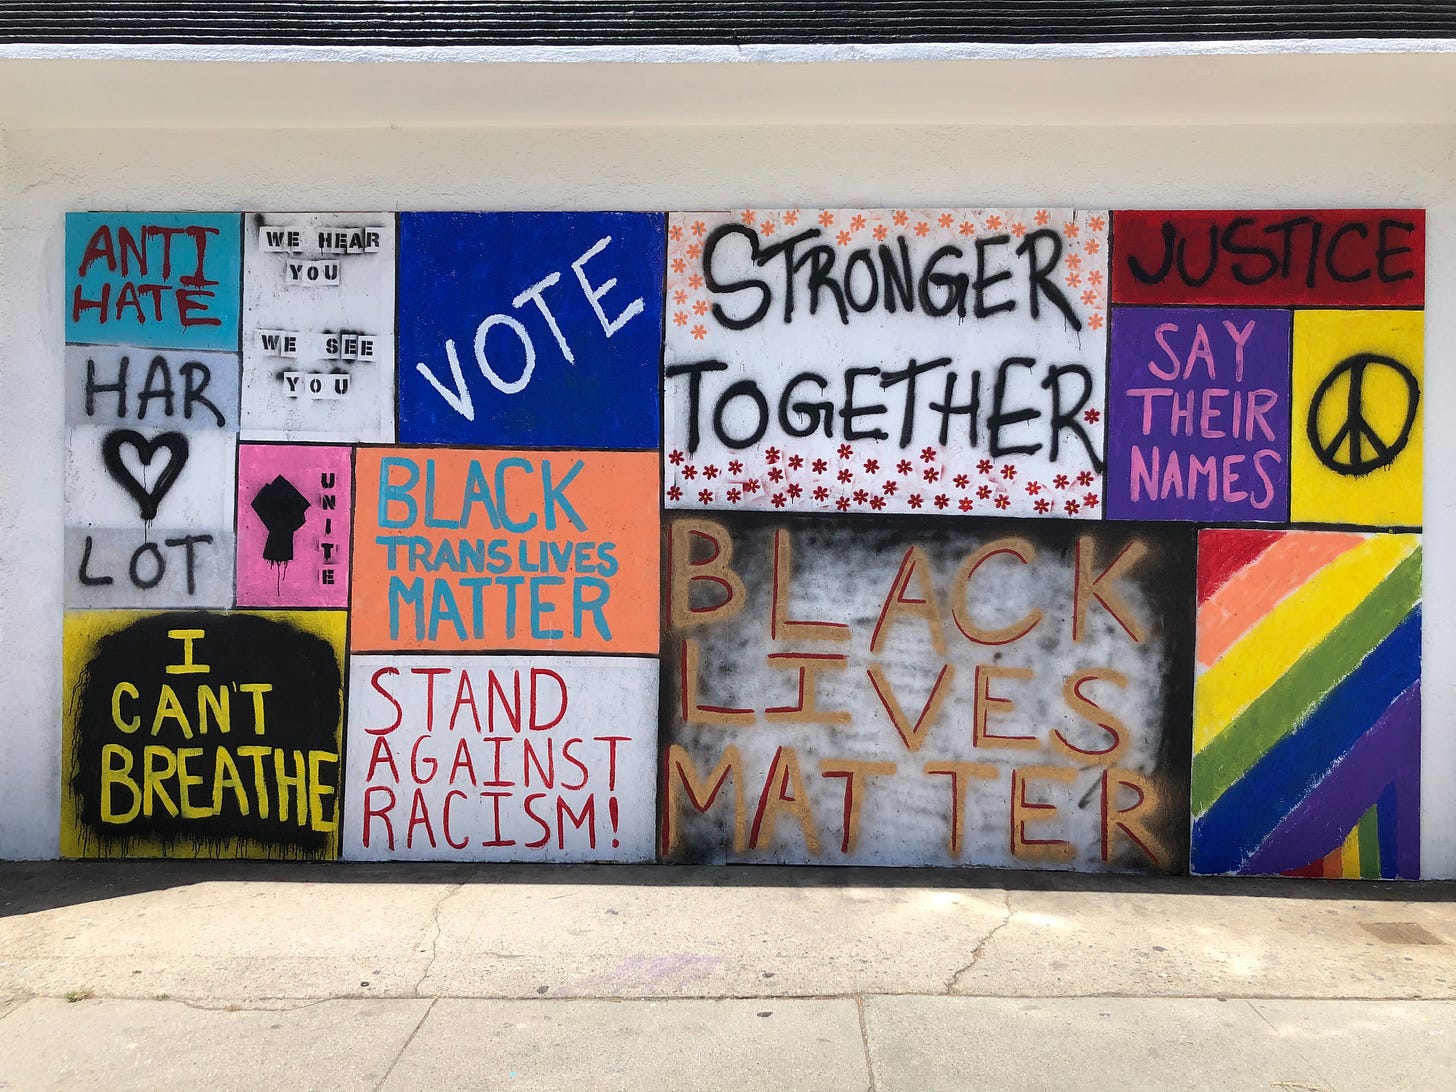 ANTI
HATE
WE HEAR
YOU
WE SEE
YOU
VOTE
STRONGER
TOGETHER
JUSTICE
SAY
THEIR
NAMES
HAR
LOT
UNITE
BLACK
TRANS LIVES
MATTER
I
CAN'T
BREATHE
STAND
AGAINST
RACISM!
BLACK
LIVES
MATTER